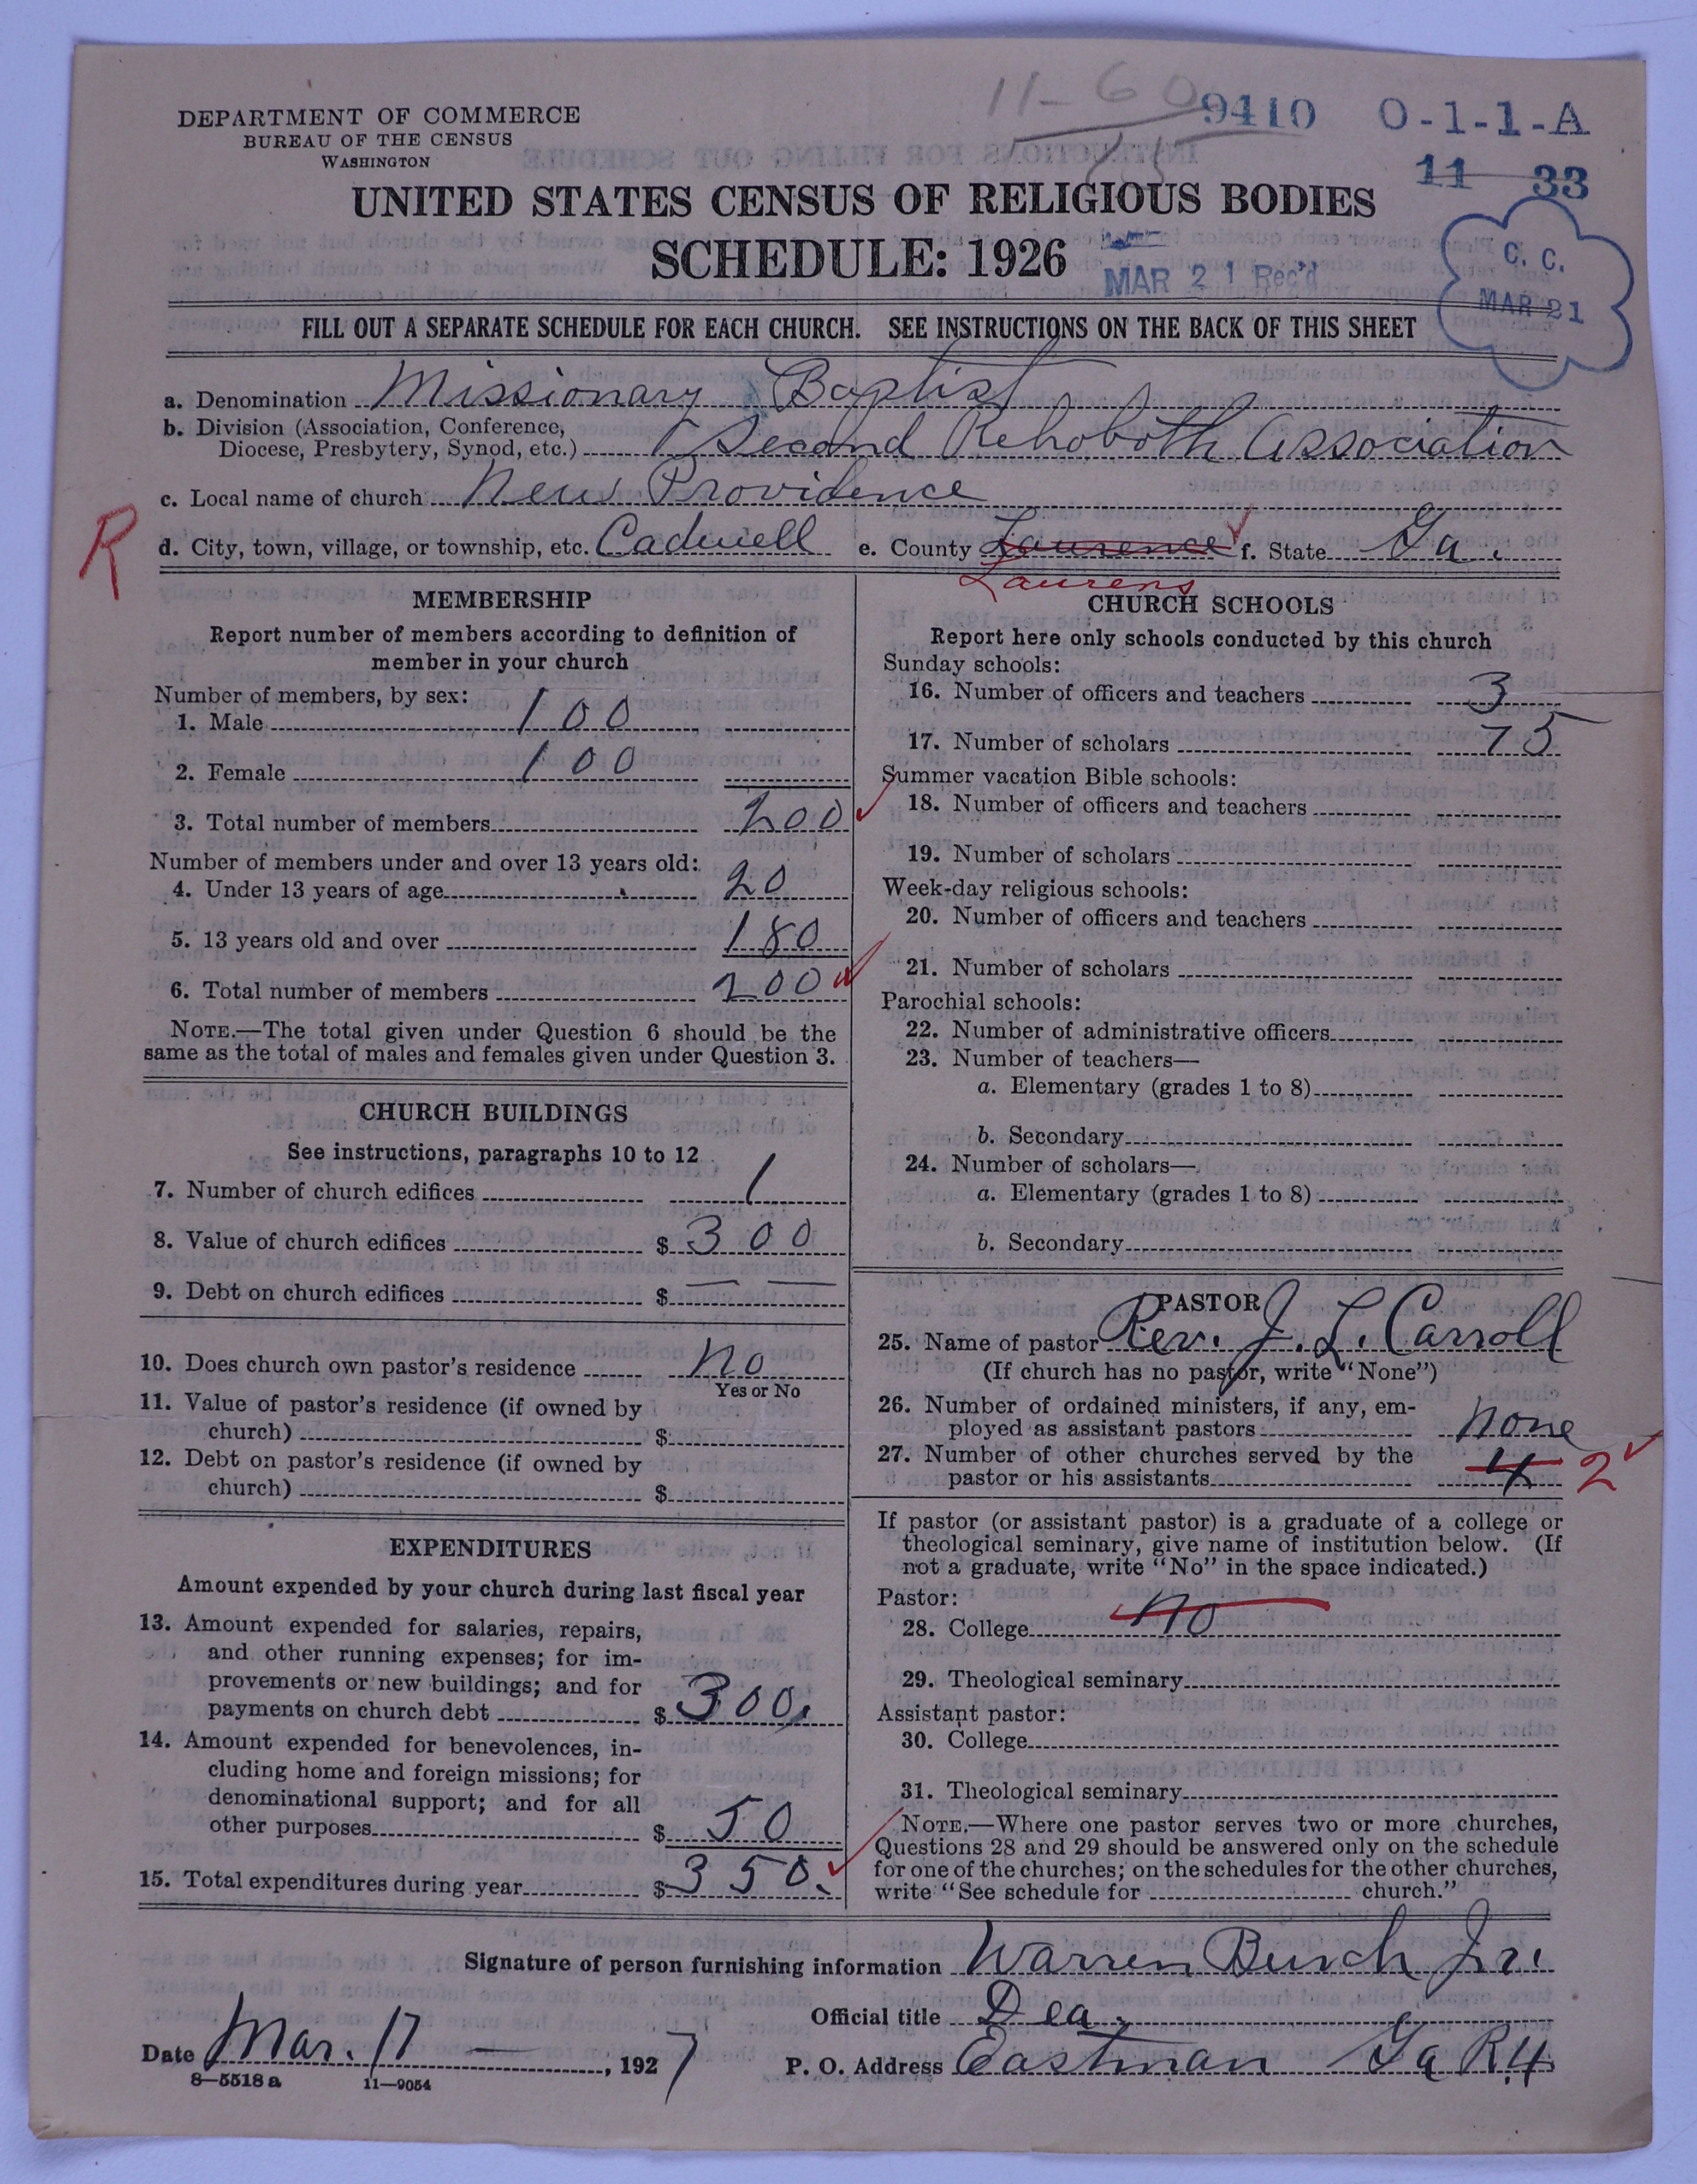 11-60
9410 0-1-1-A
11 33
DEPARTMENT OF COMMERCE
BUREAU OF THE CENSUS
WASHINGTON
UNITED STATES CENSUS OF RELIGIOUS BODIES
SCHEDULE: 1926
MAR 21 Rec'd
C. C.
MAR 21
FILL OUT A SEPARATE SCHEDULE FOR EACH CHURCH. SEE INSTRUCTIONS ON THE BACK OF THIS SHEET
a. Denomination Missionary Baptist
b. Division (Association, Conference,
Diocese, Presbytery, Synod, etc.) Second Rehoboth Association
c. Local name of church New Providence
R
d. City, town, village, or township, etc. Cadwell e. County Laurence f. State Ga.
Laurens
MEMBERSHIP
Report number of members according to definition of
member in your church
Number of members, by sex:
1. Male 100
2. Female 100
3. Total number of members 200
Number of members under and over 13 years old:
4. Under 13 years of age 20
5. 13 years old and over 180
6. Total number of members 200
NOTE.—The total given under Question 6 should be the
same as the total of males and females given under Question 3.
CHURCH BUILDINGS
See instructions, paragraphs 10 to 12
7. Number of church edifices 1
8. Value of church edifices $ 300
9. Debt on church edifices $ — —
10. Does church own pastor's residence No
Yes or No
11. Value of pastor's residence (if owned by
church) $
12. Debt on pastor's residence (if owned by
church) $
EXPENDITURES
Amount expended by your church during last fiscal year
13. Amount expended for salaries, repairs,
and other running expenses; for im-
provements or new buildings; and for
payments on church debt $ 300.
14. Amount expended for benevolences, in-
cluding home and foreign missions; for
denominational support; and for all
other purposes $ 50
15. Total expenditures during year $ 350.
CHURCH SCHOOLS
Report here only schools conducted by this church
Sunday schools:
16. Number of officers and teachers 3
17. Number of scholars 75
Summer vacation Bible schools:
18. Number of officers and teachers
19. Number of scholars
Week-day religious schools:
20. Number of officers and teachers
21. Number of scholars
Parochial schools:
22. Number of administrative officers
23. Number of teachers—
a. Elementary (grades 1 to 8)
b. Secondary
24. Number of scholars—
a. Elementary (grades 1 to 8)
b. Secondary
PASTOR
25. Name of pastor Rev. J. L. Carroll
(If church has no pastor, write "None")
26. Number of ordained ministers, if any, em-
ployed as assistant pastors none
27. Number of other churches served by the
pastor or his assistants 4 2
If pastor (or assistant pastor) is a graduate of a college or
theological seminary, give name of institution below. (If
not a graduate, write "No" in the space indicated.)
Pastor:
28. College No
29. Theological seminary
Assistant pastor:
30. College
31. Theological seminary
NOTE.—Where one pastor serves two or more churches,
Questions 28 and 29 should be answered only on the schedule
for one of the churches; on the schedules for the other churches,
write "See schedule for church."
Signature of person furnishing information Warren Burch Jr.
Official title Dea.
Date Mar. 17 —, 1927 P. O. Address Eastman Ga R.4
8—5518 a 11—9054